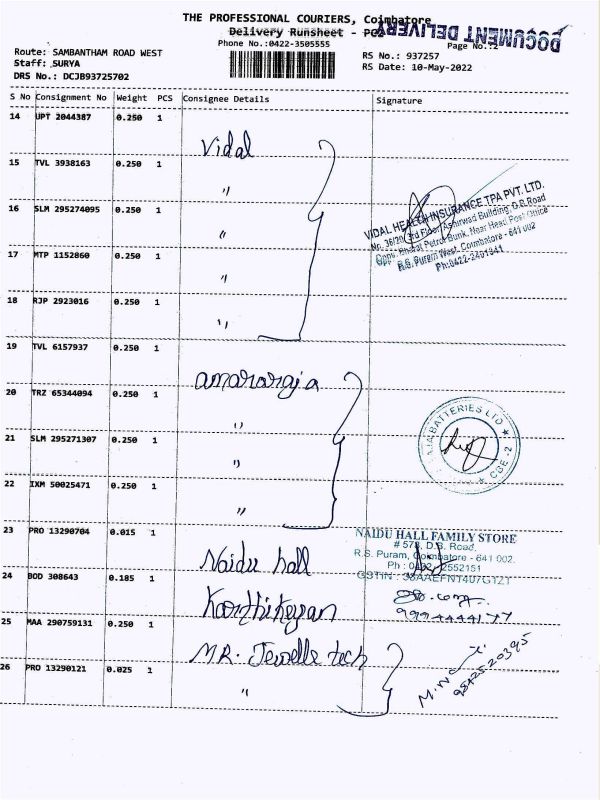 THE PROFESSIONAL COURIERS, Coimbatore
Delivery Runsheet - PCD
DOCUMENT DELIVERY
Phone No.:0422-3505555
Page No.:2
Route: SAMBANTHAM ROAD WEST
RS No.: 937257
Staff: SURYA
RS Date: 10-May-2022
DRS No.: DCJB93725702
S No Consignment No Weight PCS Consignee Details Signature
14 UPT 2044387 0.250 1
Vidal
15 TVL 3938163 0.250 1
"
VIDAL HEALTH INSURANCE TPA PVT. LTD.
No. 36/20, 3rd Floor, Ashirwad Building, D.B.Road
Opp. Bharat Petrol Bunk, Near Head Post Office
R.S. Puram West, Coimbatore - 641 002
Ph:0422-2451941
16 SLM 295274095 0.250 1
"
17 MTP 1152860 0.250 1
"
18 RJP 2923016 0.250 1
"
19 TVL 6157937 0.250 1
amararaja
20 TRZ 65344094 0.250 1
"
BATTERIES LTD
CBE-2
21 SLM 295271307 0.250 1
"
22 IXM 50025471 0.250 1
"
23 PRO 13290704 0.015 1
Naidu hall
NAIDU HALL FAMILY STORE
# 578, D.B. Road,
R.S. Puram, Coimbatore - 641 002.
Ph : 0422 - 2552151
GSTIN : 33AAEFN1407G1ZT
24 BOD 308643 0.185 1
Karthikeyan
9994444177
25 MAA 290759131 0.250 1
MR. Jewelle tech
26 PRO 13290121 0.025 1
"
9842520395